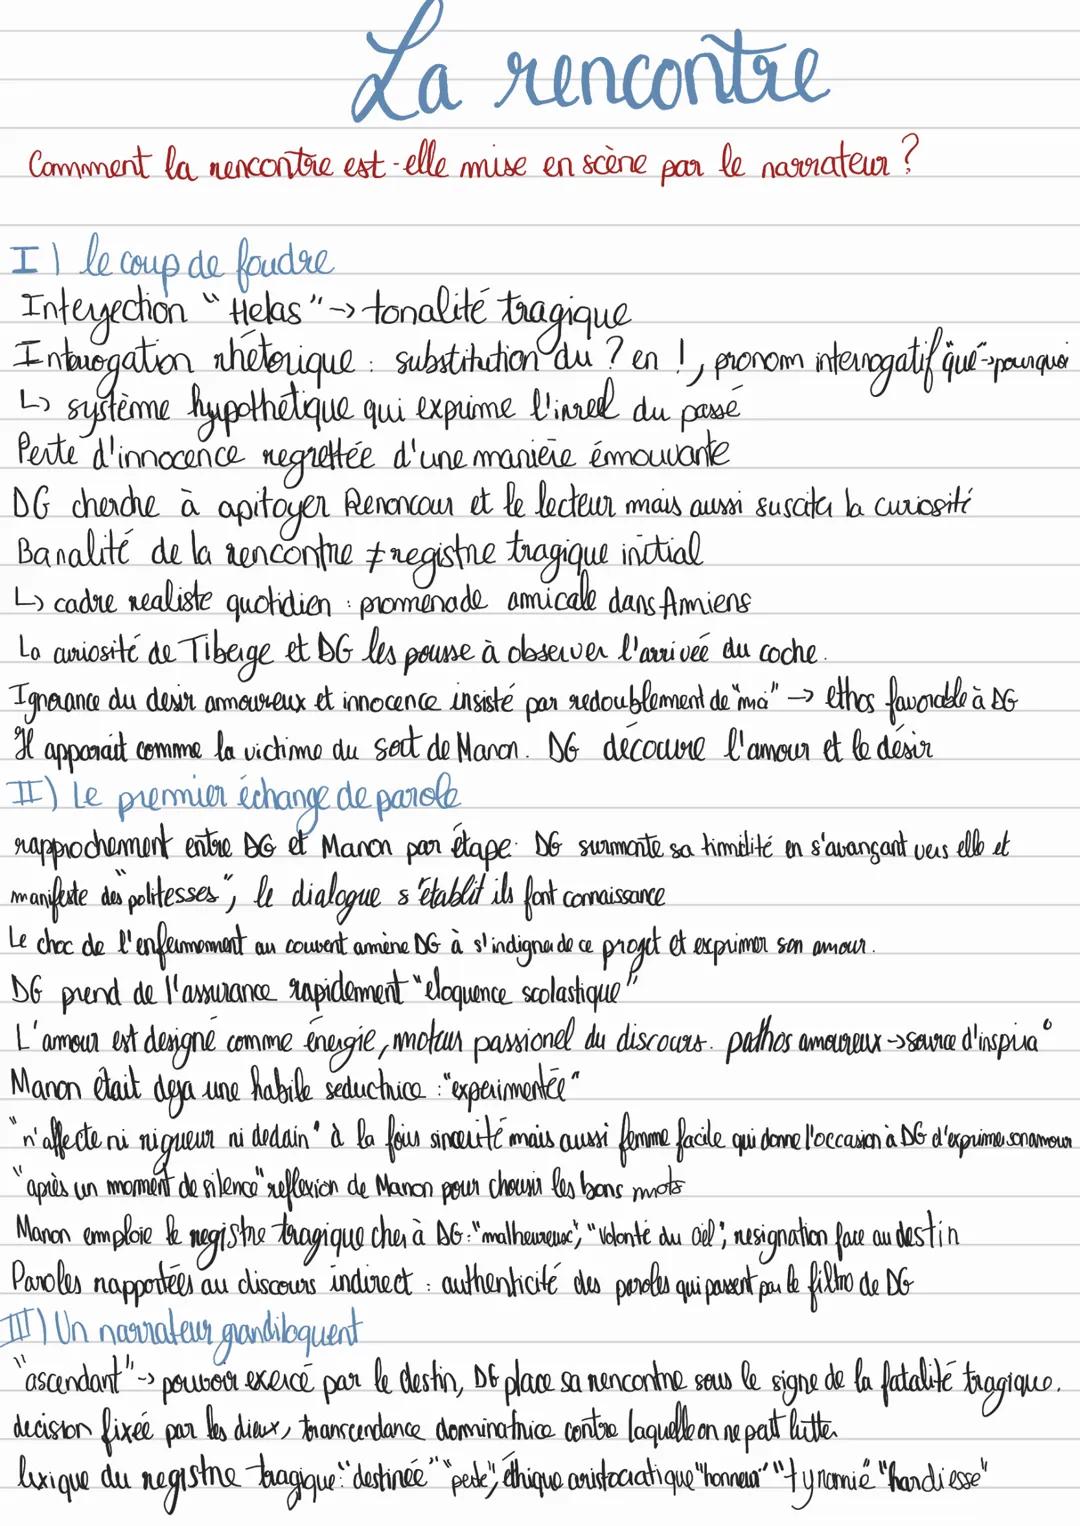 La rencontre
Comment la rencontre est-elle mise en scène par le narrateur ?
I) le coup de foudre
Interjection "Helas" -> tonalité tragique
Interrogation rhétorique : substitution du ? en !, pronom interrogatif "que" -> pourquoi
↳ système hypothétique qui exprime l'irréel du passé
Perte d'innocence regrettée d'une manière émouvante
DG cherche à apitoyer Renoncour et le lecteur mais aussi susciter la curiosité
Banalité de la rencontre ≠ registre tragique initial
↳ cadre realiste quotidien : promenade amicale dans Amiens
La curiosité de Tiberge et DG les pousse à observer l'arrivée du coche.
Ignorance du desir amoureux et innocence insisté par redoublement de "moi" -> ethos favorable à DG
Il apparait comme la victime du sort de Manon. DG découvre l'amour et le désir
II) Le premier échange de parole
rapprochement entre DG et Manon par étape. DG surmonte sa timidité en s'avançant vers elle et
manifeste des "politesses", le dialogue s'établit ils font connaissance
Le choc de l'enfermement au couvent amène DG à s'indigner de ce projet et exprimer son amour.
DG prend de l'assurance rapidement "eloquence scolastique"
L'amour est designé comme énergie, moteur passionel du discours. pathos amoureux -> source d'inspira°
Manon était deja une habile seductrice : "experimentée"
"n'affecte ni rigueur ni dedain" à la fois sincerité mais aussi femme facile qui donne l'occasion à DG d'exprimer son amour
"après un moment de silence" reflexion de Manon pour choisir les bons mots
Manon emploie le registre tragique cher à DG : "malheureux", "Volonté du ciel"; resignation face au destin
Paroles rapportées au discours indirect : authenticité des paroles qui passent par le filtre de DG
III) Un narrateur grandiloquent
"ascendant" -> pouvoir exercé par le destin, DG place sa rencontre sous le signe de la fatalité tragique.
decision fixée par les dieux, transcendance dominatrice contre laquelle on ne peut lutter
lexique du registre tragique : "destinée" "perte", éthique aristocratique "honneur" "tyrannie" "hardiesse"